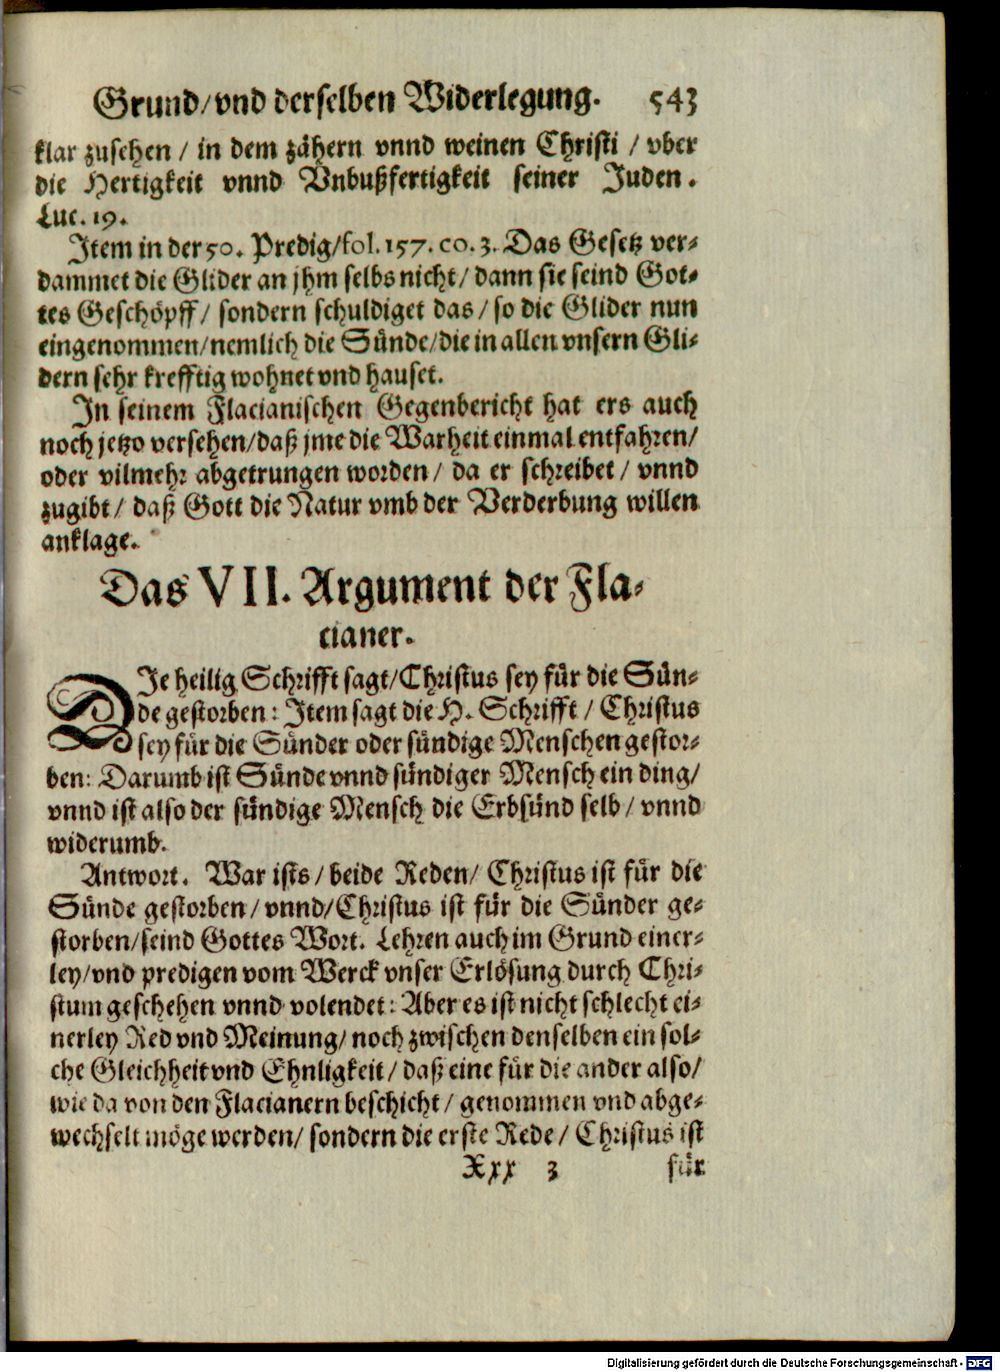 Grund/ vnd derselben Widerlegung. 543
klar zusehen / in dem zähern vnnd weinen Christi / vber
die Hertigkeit vnnd Vnbußfertigkeit seiner Juden.
Luc. 19.
Item in der 50. Predig/ fol. 157. co. 3. Das Gesetz ver-
dammet die Glider an jhm selbs nicht/ dann sie seind Got-
tes Geschöpff/ sondern schuldiget das/ so die Glider nun
eingenommen/ nemlich die Sünde/ die in allen vnsern Gli-
dern sehr krefftig wohnet vnd hauset.
In seinem Flacianischen Gegenbericht hat ers auch
noch jetzo versehen/ daß jme die Warheit einmal entfahren/
oder vilmehr abgetrungen worden/ da er schreibet/ vnnd
zugibt/ daß Gott die Natur vmb der Verderbung willen
anklage.
Das VII. Argument der Fla-
cianer.
DIe heilig Schrifft sagt/ Christus sey für die Sün-
de gestorben: Item sagt die H. Schrifft / Christus
sey für die Sünder oder sündige Menschen gestor-
ben: Darumb ist Sünde vnnd sündiger Mensch ein ding/
vnnd ist also der sündige Mensch die Erbsünd selb/ vnnd
widerumb.
Antwort. War ists/ beide Reden/ Christus ist für die
Sünde gestorben/ vnnd/ Christus ist für die Sünder ge-
storben/ seind Gottes Wort. Lehren auch im Grund einer-
ley/ vnd predigen vom Werck vnser Erlösung durch Chri-
stum geschehen vnnd volendet: Aber es ist nicht schlecht ei-
nerley Red vnd Meinung/ noch zwischen denselben ein sol-
che Gleichheit vnd Ehnligkeit/ daß eine für die ander also/
wie da von den Flacianern beschicht/ genommen vnd abge-
wechselt möge werden/ sondern die erste Rede/ Christus ist
Xxx 3 für
Digitalisierung gefördert durch die Deutsche Forschungsgemeinschaft - DFG